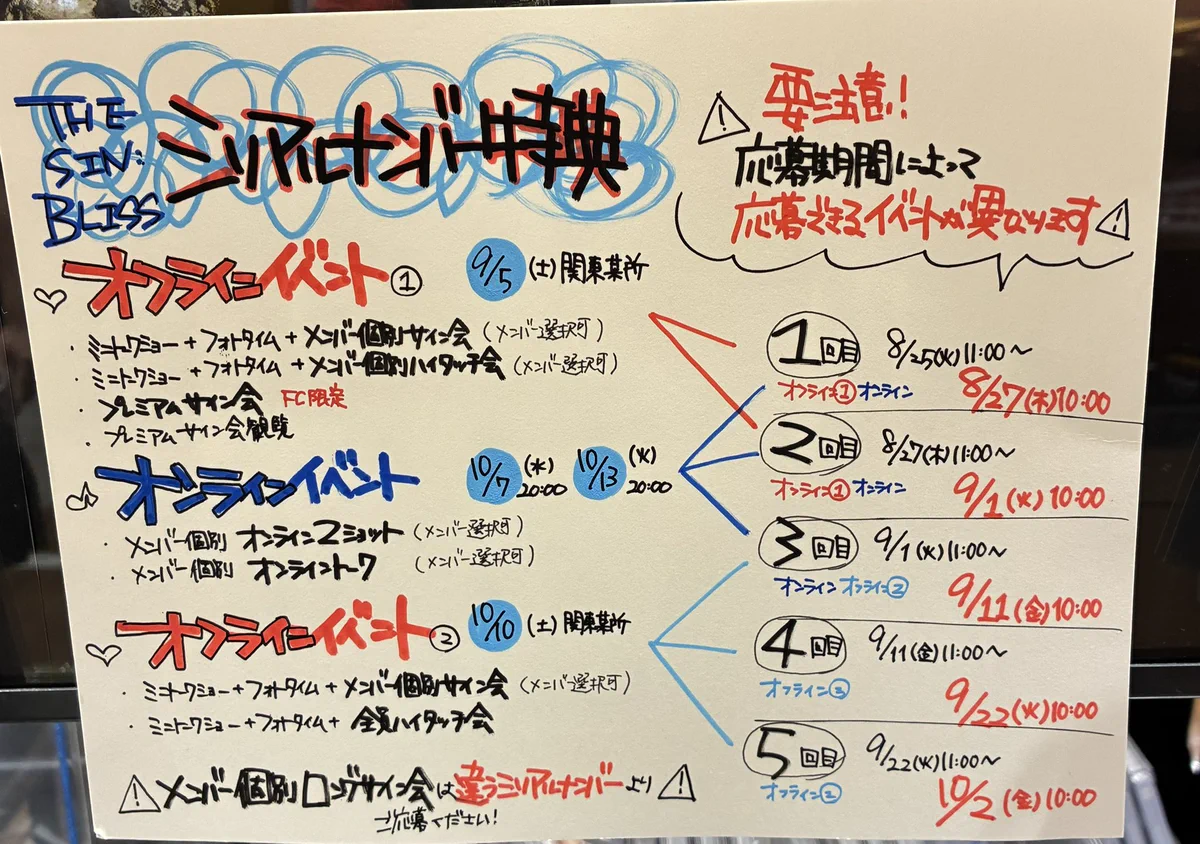 THE
SIN:
BLISS
シリアルナンバー特典
⚠ 要注意!
応募期間によって
応募できるイベントが異なります ⚠
♡ オフラインイベント ① 9/5 (土) 関東某所
・ミニトークショー + フォトタイム + メンバー個別サイン会 (メンバー選択可)
・ミニトークショー + フォトタイム + メンバー個別ハイタッチ会 (メンバー選択可)
・プレミアムサイン会 FC限定
・プレミアムサイン会観覧
♪ オンラインイベント 10/7 (水) 20:00 10/13 (火) 20:00
・メンバー個別 オンライン2ショット (メンバー選択可)
・メンバー個別 オンライントーク (メンバー選択可)
♡ オフラインイベント ② 10/10 (土) 関東某所
・ミニトークショー+フォトタイム+メンバー個別サイン会 (メンバー選択可)
・ミニトークショー+フォトタイム+ 全員ハイタッチ会
⚠ メンバー個別ロングサイン会は違うシリアルナンバーより ⚠
ご応募ください!
1回目 8/25(火)11:00〜
オフライン① オンライン 8/27(木)10:00
2回目 8/27(木)11:00〜
オンライン① オンライン 9/1(火)10:00
3回目 9/1(火)11:00〜
オンライン オフライン② 9/11(金)10:00
4回目 9/11(金)11:00〜
オフライン③ 9/22(火)10:00
5回目 9/22(火)11:00〜
オフライン② 10/2(金)10:00